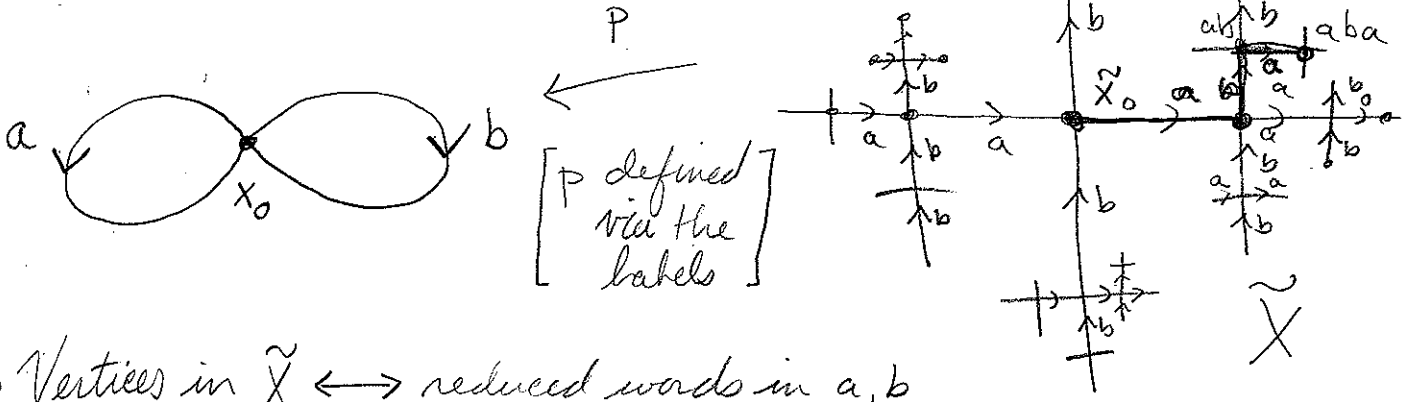 p
a
x₀
b
[p defined
via the
labels]
b
b
a
b
a
b
x̃₀
b
b
a
ab
b
a
aba
b
a
a
b
b
b
a
a
b
X̃
Vertices in X̃ ⟷ reduced words in a, b